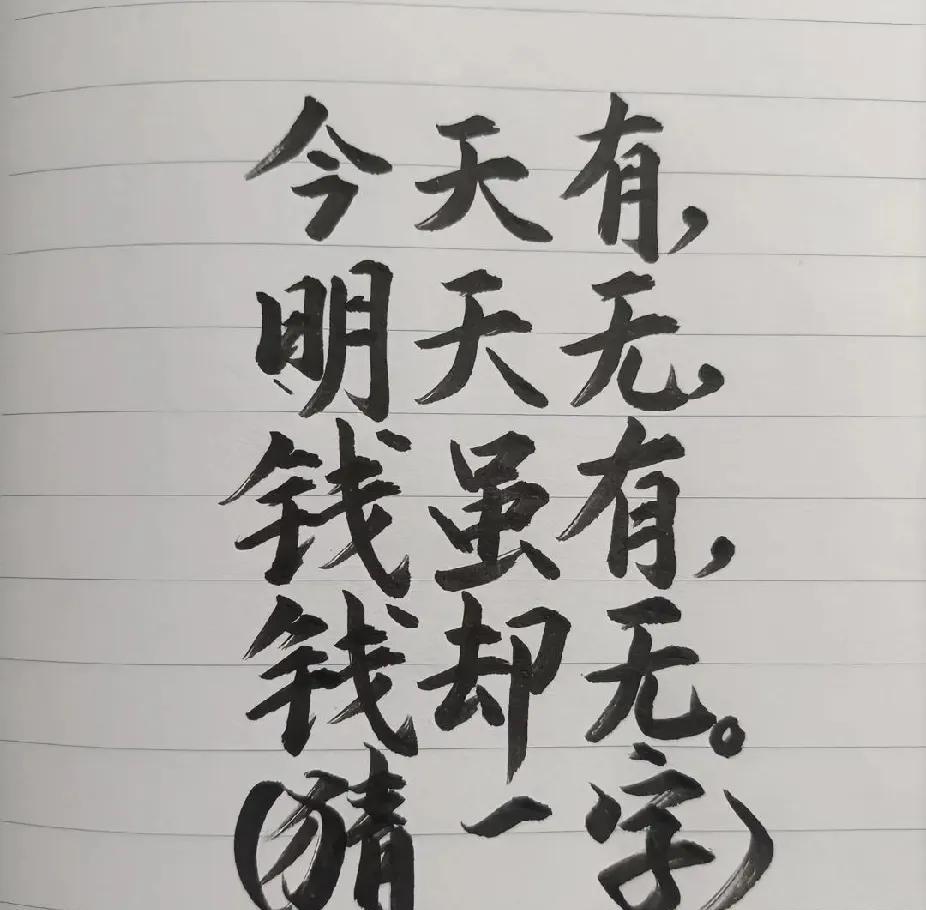 今天有，
明天无，
钱虽有，
钱却无。
（猜一字）